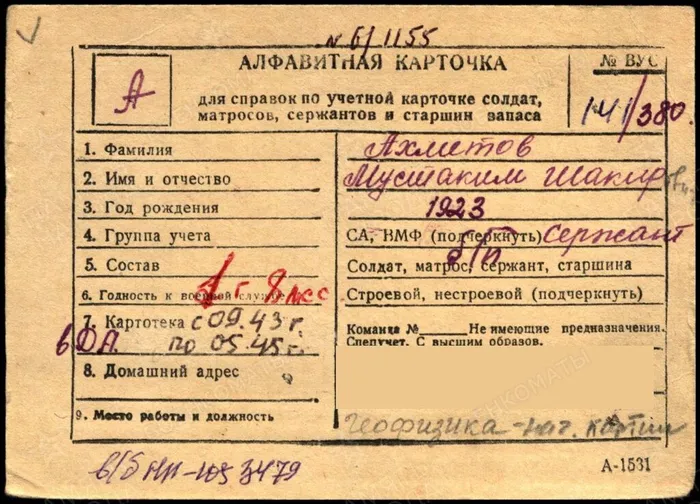 № б/1155
А
АЛФАВИТНАЯ КАРТОЧКА
для справок по учетной карточке солдат,
матросов, сержантов и старшин запаса
№ ВУС
141/380.
1. Фамилия Ахметов
2. Имя и отчество Мустаким Шакир
3. Год рождения 1923
4. Группа учета СА, ВМФ (подчеркнуть) Сержант
б/п
5. Состав Солдат, матрос, сержант, старшина
6. Годность к военной службе Строевой, нестроевой (подчеркнуть)
7. Картотека с 09.43 г. Команда № Не имеющие предназначения.
в ДА. по 05.45 г. Спецучет. С высшим образов.
8. Домашний адрес
9. Место работы и должность геофизика - нач. партии
в/б НП 3479
А-1531